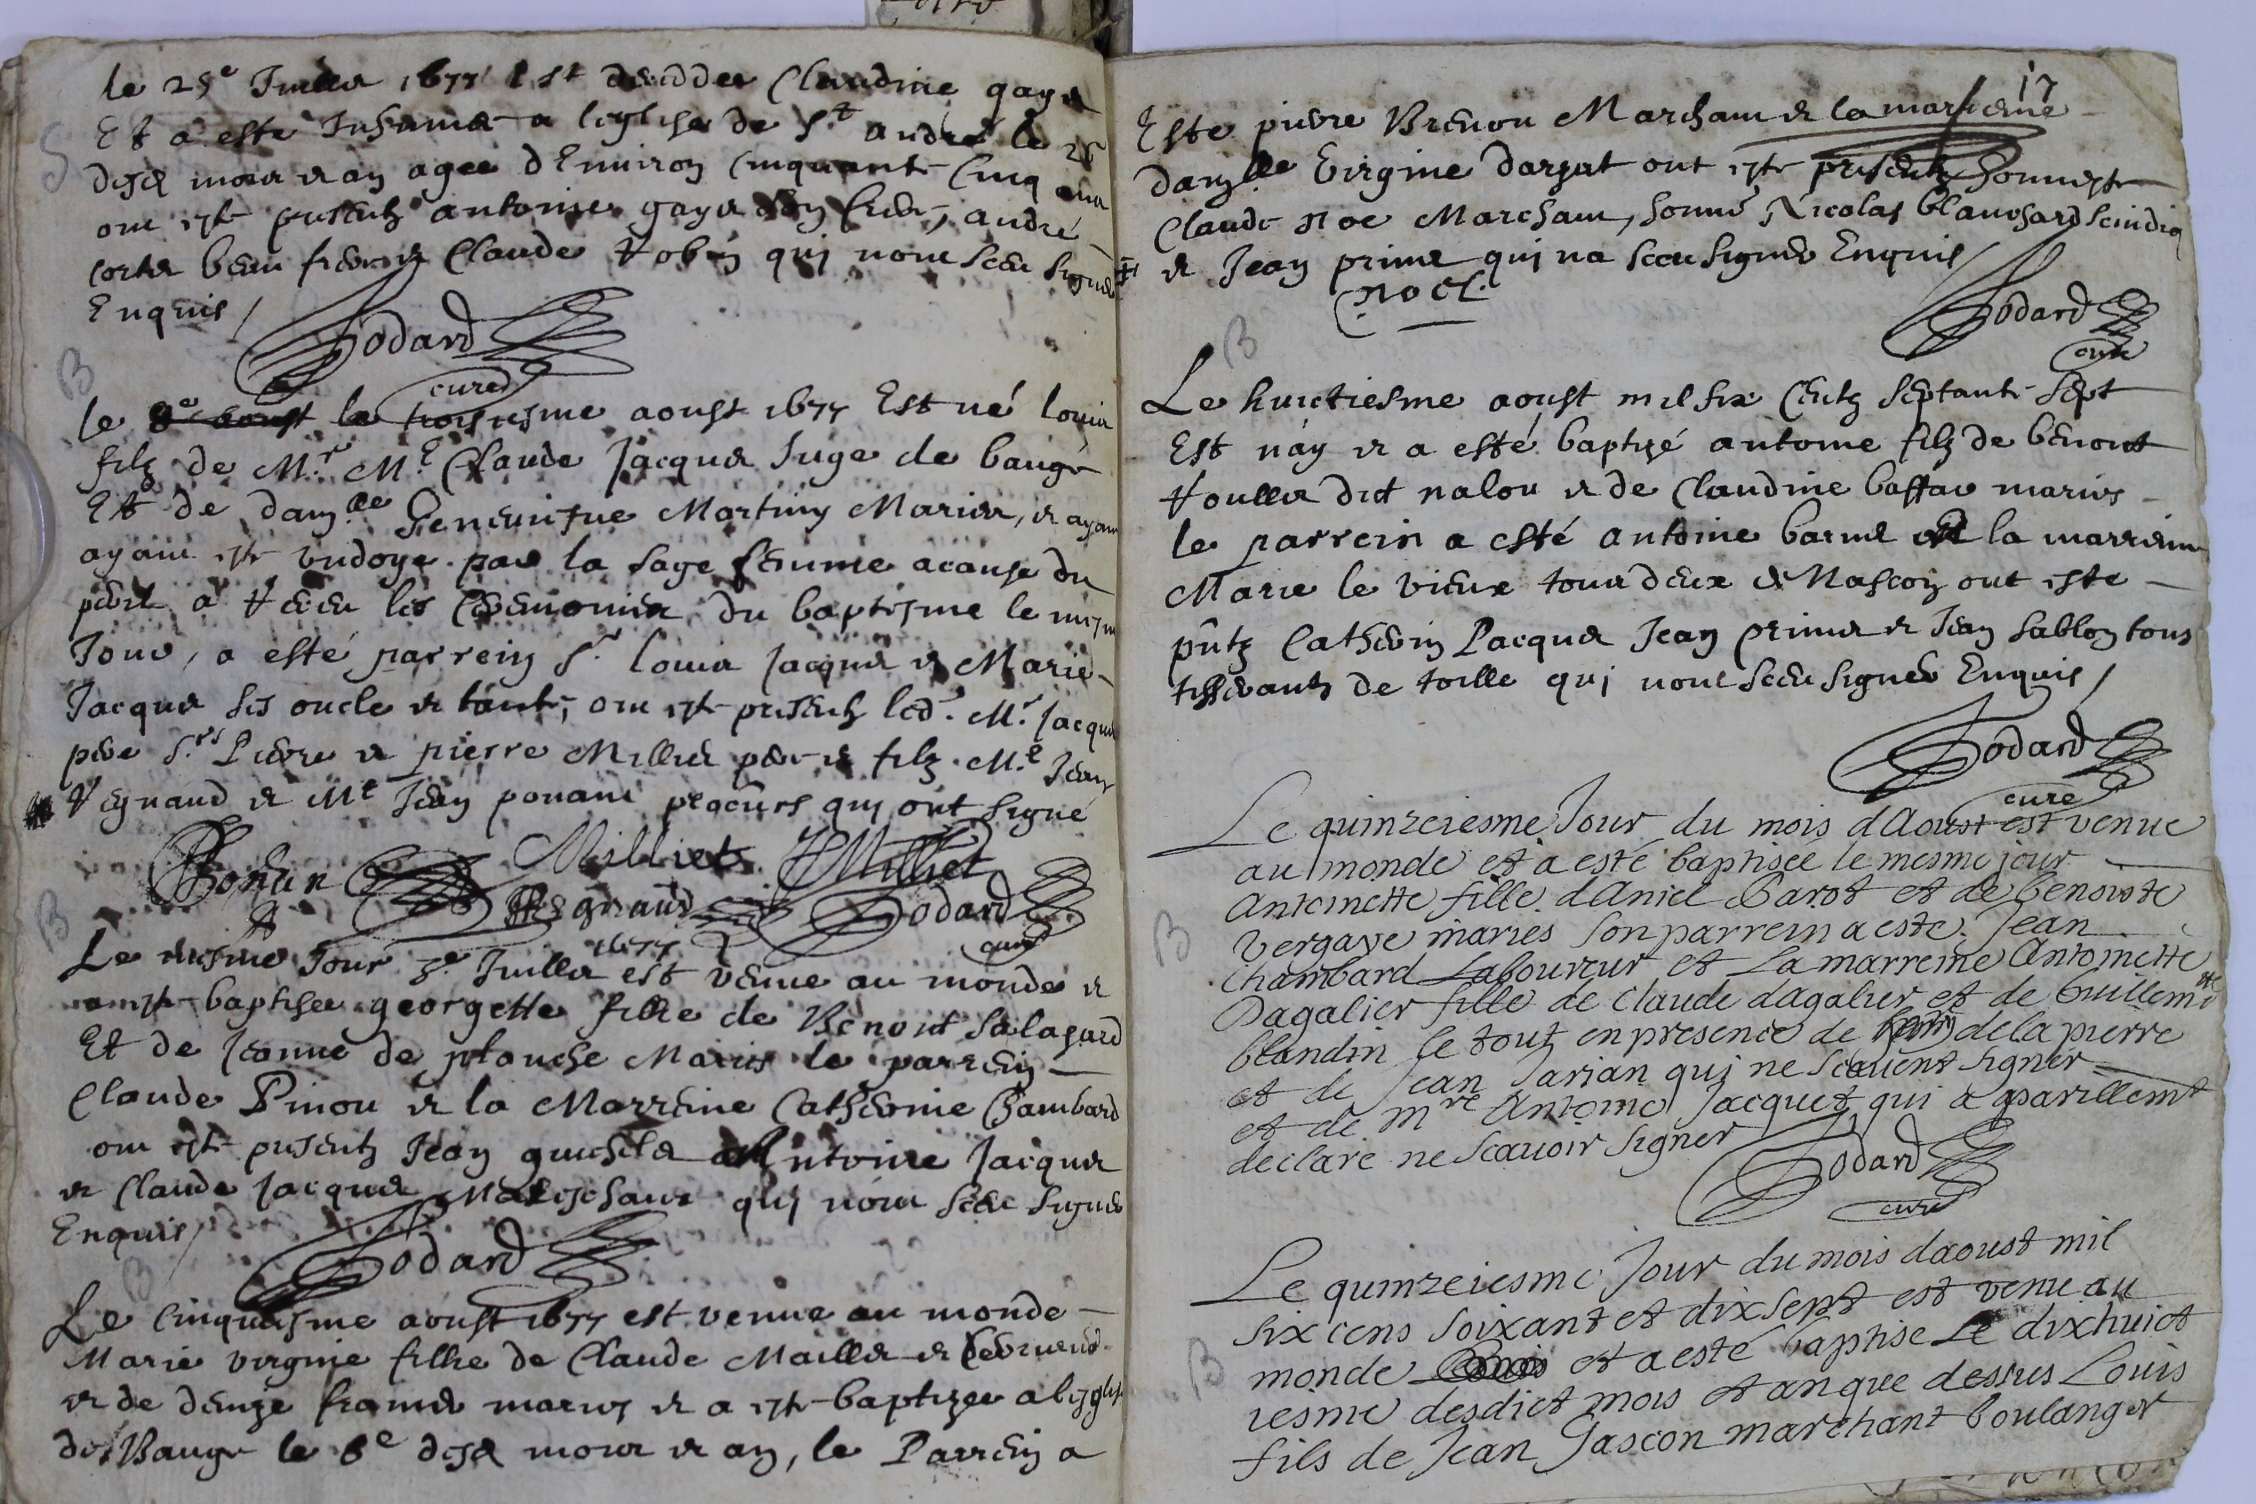 le 25e Juillet 1677 est decedee Claudine gayet
Et a este Inhumee a leglise de St André le 26
desd mois et an agee dEnviron Cinquante Cinq ans
ont este presents antoine gayet son frere, andré
beau frere et Claude Robin qui nont sceu signer
Enquis /
Godard
curé
le troisiesme aoust 1677 Est né louis
filz de Mr Me Claude Jacquet Juge de baugé
Et de damlle Genevieve Martiny Mariez, et ayant
ayant este ondoye par la sage femme acause du
peril a receu les Ceremonies du baptesme le mesme
Jour, a esté parrein Sr louis Jacquet et Marie
Jacquet ses oncle et tante, ont este presents led. Mr Jacquet
pere Srs Pierre et pierre Milliet pere et filz Me Jean
Regnaud et Me Jean ponant procurs qui ont signé
Milliet Milliet
Regnaud Godard
curé
Le mesme Jour 3e Juillet 1677 est venue au monde et
a este baptisee georgette fille de Benoist Salagard
Et de Jeanne de planche Mariés le parrein
Claude Pinou et la Marreine Catherine Chambard
ont este presents Jean guichelet Antoine Jacquet
et Claude Jacquet Mareschaux qui nont sceu signer
Enquis /
Godard
Le Cinquiesme aoust 1677 est venue au monde
Marie virginie fille de Claude Maillet et
et de denize mariés et a este baptizee a leglise
de Baugé le 8e desd mois et an, le Parrein a
17
Este pierre Brenou Marchant et la marreine
damlle Virgine darzat ont este presents honneste
Claude Noe Marchant, honne Nicolas blanchard scindiq
et Jean primet qui na sceu signer Enquis /
Noel
Godard
curé
Le huictiesme aoust mil six Centz septante sept
Est náy et a esté baptizé antoine filz de benoist
Voullet dict nalou et de Claudine baffac mariés
le parrein a esté antoine barnet et la marreine
Marie le vieux tous deux de Mascon ont este
pntz Catherin Pacquet Jean primet et Jean Sablon tous
tisserants de toille qui nont sceu signer Enquis /
Godard
curé
Le quinzeiesme Jour du mois dAoust est venue
au monde et a esté baptisée le mesme jour
Antoinette fille dAniel Barot et de benoiste
Vergaye maries son parrein a esté Jean
Chambard Laboureur et La marreine Antoinette
Dagalier fille de Claude dagalier et de Guillemtte
blandin le tout en presence de dela pierre
et de Jean Jarian qui ne scavent signer
et de Mre Antoine Jacquet qui a parillemt
declaré ne scavoir signer
Godard
curé
Le quinzeiesme Jour du mois daoust mil
six cens soixant et dix sept est venu au
monde et a esté baptise Le dixhuict
iesme desdict mois et an que dessus Louis
fils de Jean Gascon marchant boulanger